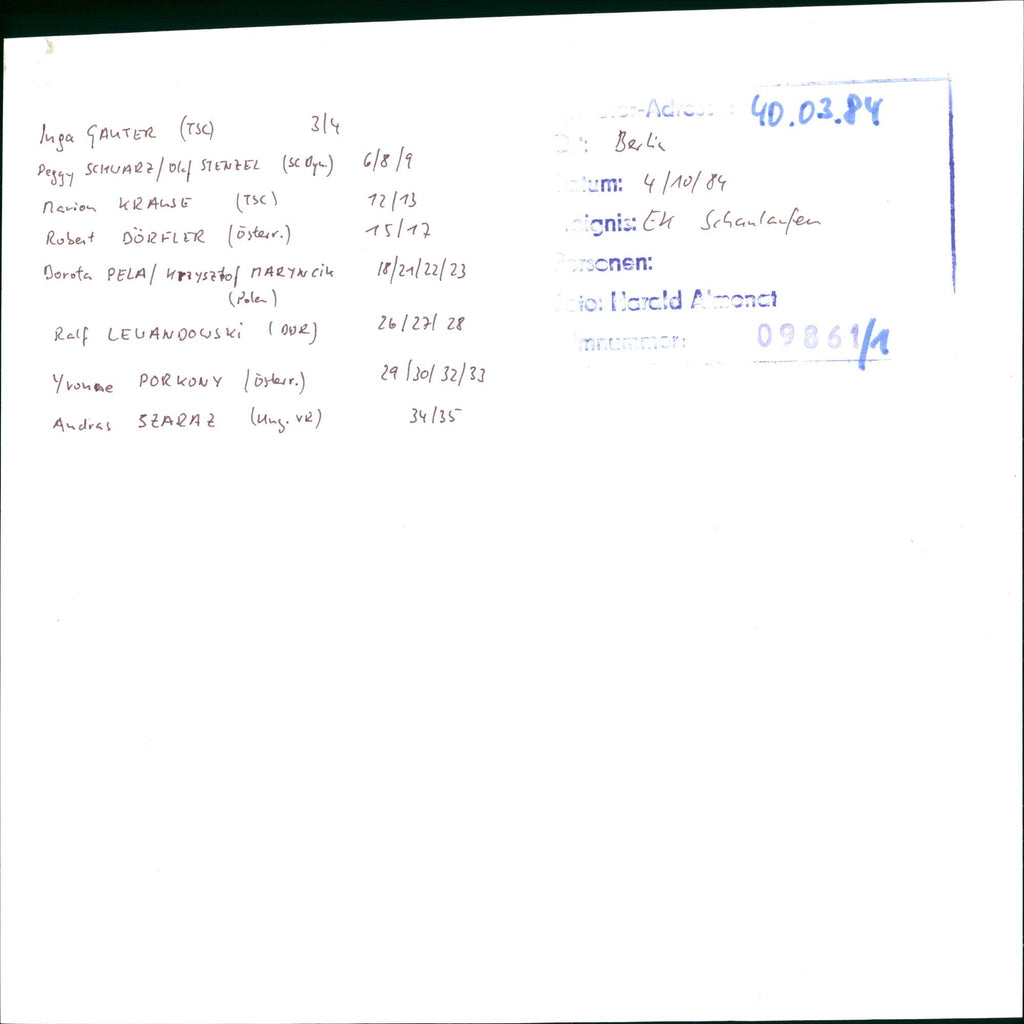 Inga GAUTER (TSC) 3/4
Peggy SCHWARZ/Olaf STENZEL (SC Dyn.) 6/8/9
Marion KRAUSE (TSC) 12/13
Robert DÖRFLER (Österr.) 15/17
Dorota PELA/ Krzysztof MARYNCIK 18/21/22/23
(Polen)
Ralf LEWANDOWSKI (DDR) 26/27/28
Yvonne PORKONY (Österr.) 29/30/32/33
Andras SZARAZ (Ung. VR) 34/35
-Adress : 40.03.84
Ort: Berlin
Datum: 4/10/84
Ereignis: EK Schaulaufen
Personen:
Foto: Harald Almonat
Filmnummer: 09861/1